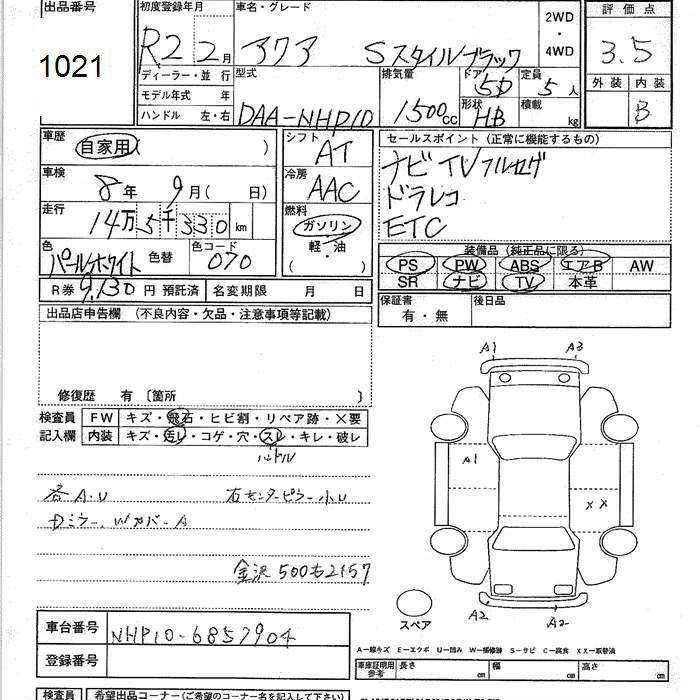 出品番号
1021
初度登録年月
R2 2月
車名・グレード
アクア Sスタイルブラック
2WD
・
4WD
評価点
3.5
外装 内装
B
ディーラー・並 行
モデル年式 年
ハンドル 左・右
型式
DAA-NHP10
排気量
1500cc
ドア
5D
形状
HB
定員
5人
積載
kg
車歴
自家用( )
車検
8年 9月( 日)
走行
14万5千330km
色
パールホワイト
色替
色コード
070
シフト
AT
冷房
AAC
燃料
ガソリン
軽・油
( )
セールスポイント(正常に機能するもの)
ナビ TVフルセグ
ドラレコ
ETC
装備品(純正品に限る)
PS PW ABS エアB AW
SR ナビ TV 本革
R券 9,130円 預託済 名変期限 月 日
保証書
有・無
後日品
出品店申告欄 (不良内容・欠品・注意事項等記載)
修復歴 有〔箇所 〕
検査員
記入欄
FW キズ・飛石・ヒビ割・リペア跡・×要
内装 キズ・汚レ・コゲ・穴・スレ・キレ・破レ
ハンドル
各A.U 右センターピラー小U
Dミラー.Wカバー A
金沢 500も2157
A1 A3
A1
XX
A2 A2
スペア
車台番号 NHP10-6857904
登録番号
A―線キズ E―エクボ U―凹み W―補修跡 S―サビ C―腐食 XX―取替済
車庫証明用
参考
長さ cm 幅 cm 高さ cm
検査員 希望出品コーナー(ご希望のコーナー名を記入して下さい)